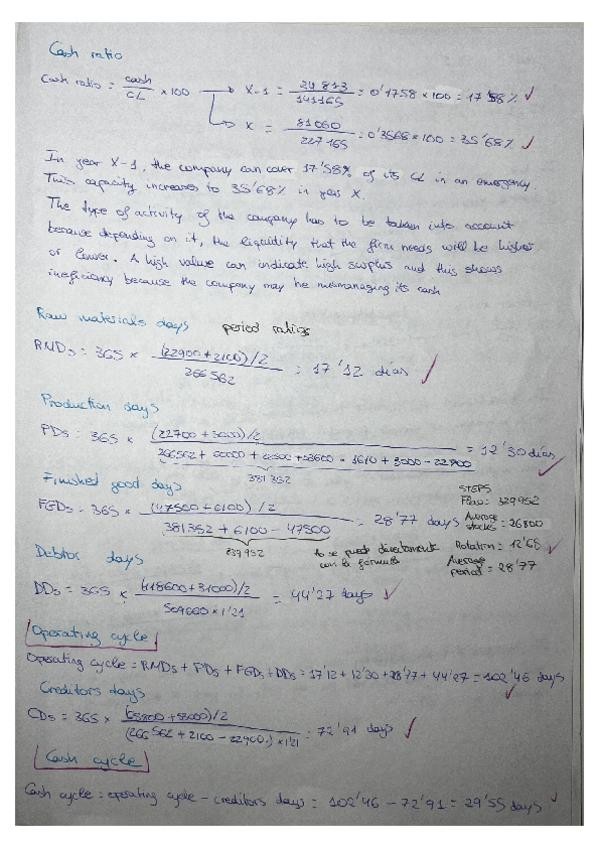 Cash ratio
Cash ratio = cash / CL × 100 → X-1 = 24813 / 141165 = 0'1758 × 100 = 17'58% ✓
↳ X = 81060 / 227165 = 0'3568 × 100 = 35'68% ✓
In year X-1, the company can cover 17'58% of its CL in an emergency.
This capacity increases to 35'68% in year X.
The type of activity of the company has to be taken into account
because depending on it, the liquidity that the firm needs will be higher
or lower. A high value can indicate high surplus and this shows
inefficiency because the company may be mismanaging its cash
Raw materials days period ratios
RMDs = 365 × (22900 + 2100)/2 / 266562 = 17'12 días ✓
Production days
PDs = 365 × (22700 + 3000)/2 / 266562 + + + 53600 - + 3000 - 22900 = 12'30 días ✓
381352
Finished good days
FGDs = 365 × (47500 + 6100)/2 / 381352 + 6100 - 47500 = 28'77 days ✓
STEPS
Flow: 329952
Average stocks = 26800
Rotation = 12'68 ✓
Average period = 28'77
se puede directamente
con la fórmula
Debtor days
DDs = 365 × (118600 + 31000)/2 / × 1'21 = 44'27 days ✓
Operating cycle
Operating cycle = RMDs + PDs + FGDs + DDs = 17'12 + 12'30 + 28'77 + 44'27 = 102'46 days ✓
Creditors days
CDs = 365 × (65800 + 53000)/2 / (266562 + 2100 - 22900) × 1'21 = 72'91 days ✓
Cash cycle
Cash cycle = operating cycle - creditors days = 102'46 - 72'91 = 29'55 days ✓